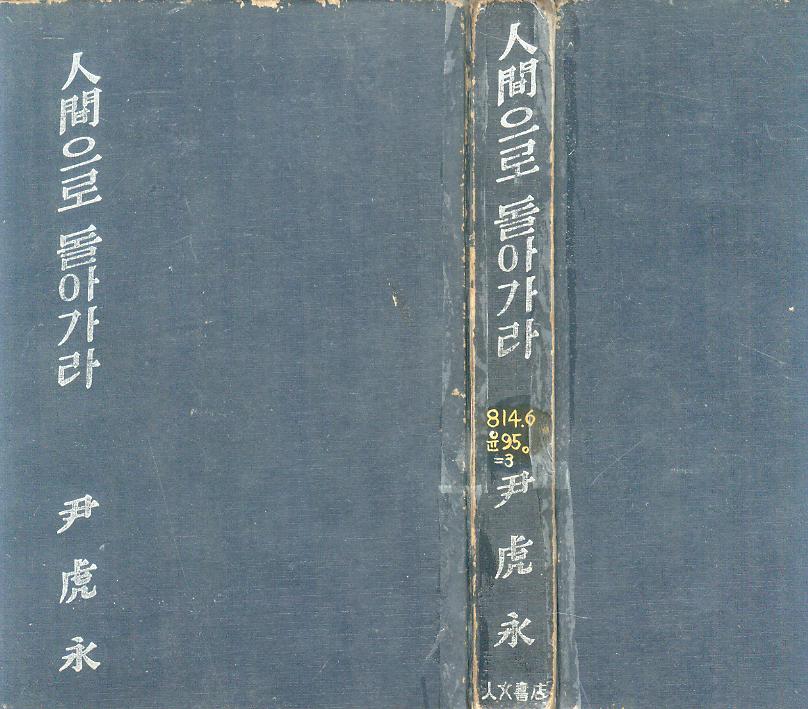 人間으로 돌아가라
尹虎永
人間으로 돌아가라
814.6
윤95ㅇ
=3
尹虎永
人文書店